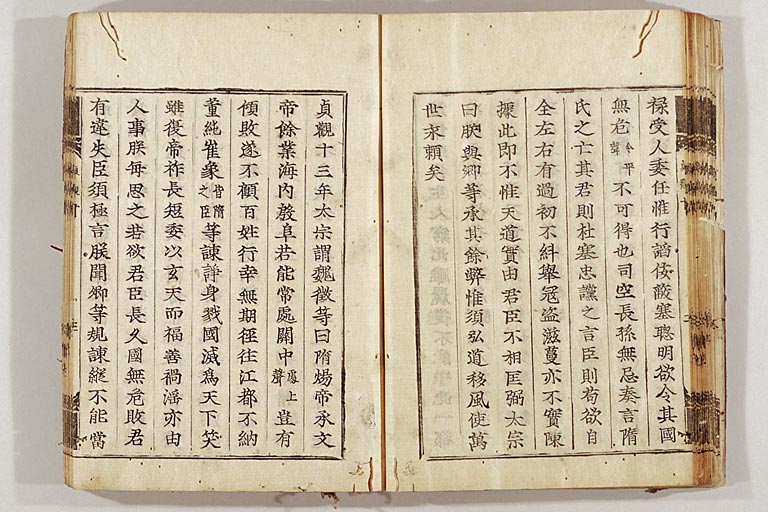 祿受人委任惟行謟佞蔽塞聰明欲令其國
無危平聲令不可得也司空長孫無忌奏言隋
氏之亡其君則杜塞忠讜之言臣則苟欲自
全左右有過初不糾舉冦盗滋蔓亦不實陳
據此即不惟天道實由君臣不相匡弼太宗
曰朕與卿等承其餘弊惟須弘道移風使萬
世永頼矣
貞觀十三年太宗謂魏徵等曰隋煬帝承文
帝餘業海内殷阜若能常處關中處上聲豈有
傾敗遂不顧百姓行幸無期徑往江都不納
董純崔象皆隋之臣等諫諍身戮國滅為天下笑
雖復帝祚長短委以玄天而福善禍滛亦由
人事朕每思之若欲君臣長久國無危敗君
有違失臣須極言朕聞卿等規諫縦不能當